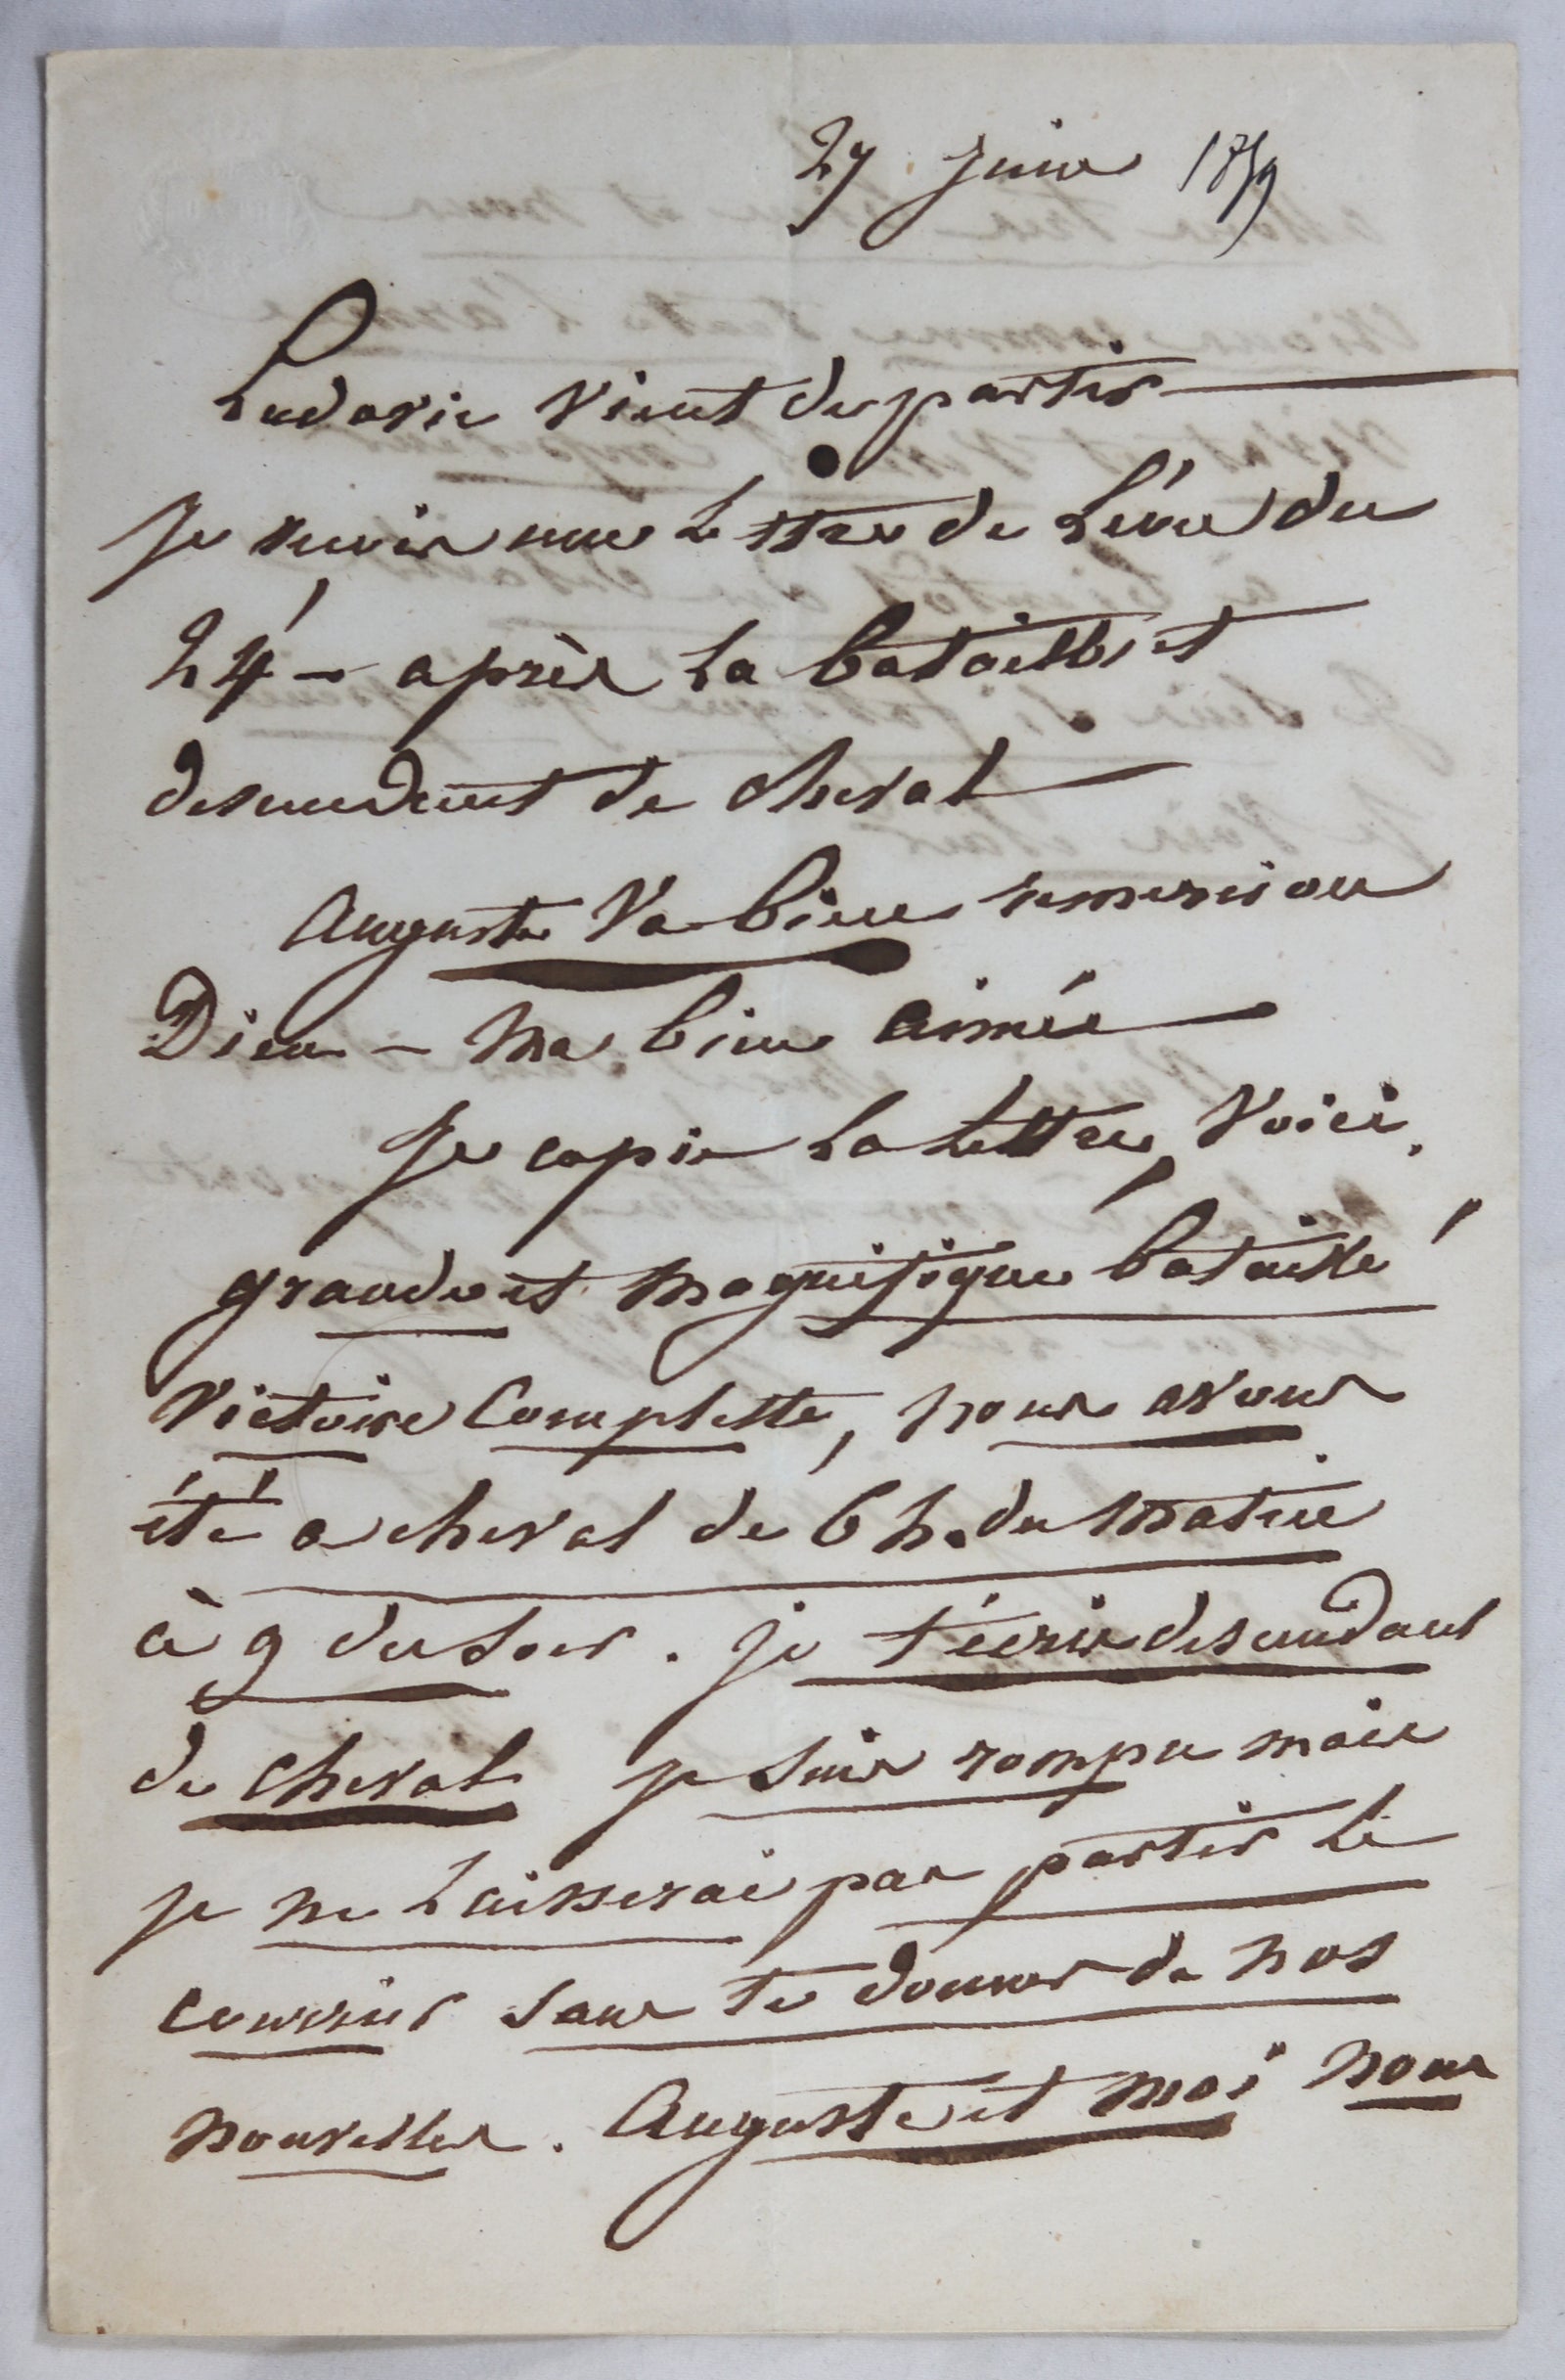 27 juin 1859
Ludovic vient de partir
je reçois une lettre de Léon du
24 – après la bataille et
descendant de cheval
Auguste va bien remercions
Dieu – ma bien aimée
je copie la lettre, voici.
grande et magnifique bataille
victoire complette, nous avons
été a cheval de 6 h. du matin
à 9 du soir. je t'écris descendant
de cheval je suis rompu mais
je ne laisserai pas partir le
courrier sans te donner de nos
nouvelles. Auguste et moi nous